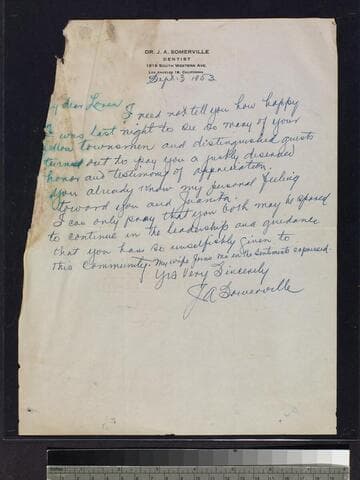 DR. J. A. SOMERVILLE
DENTIST
1819 SOUTH WESTERN AVE.
LOS ANGELES 18, CALIFORNIA
Sept. 3 1953
y dear Loren
I need not tell you how happy
I was last night to see so many of your
fellow townsmen and distinguished guests
turned out to pay you a justly deserved
honor and testimony of appreciation.
You already know my personal feeling
toward you and Juanita.
I can only pray that you both may be spared
to continue in the leadership and guidance
that you have so unselfishly given to
this Community. My wife joins me in the sentiments expressed.
Yrs Very Sincerely
JA Somerville